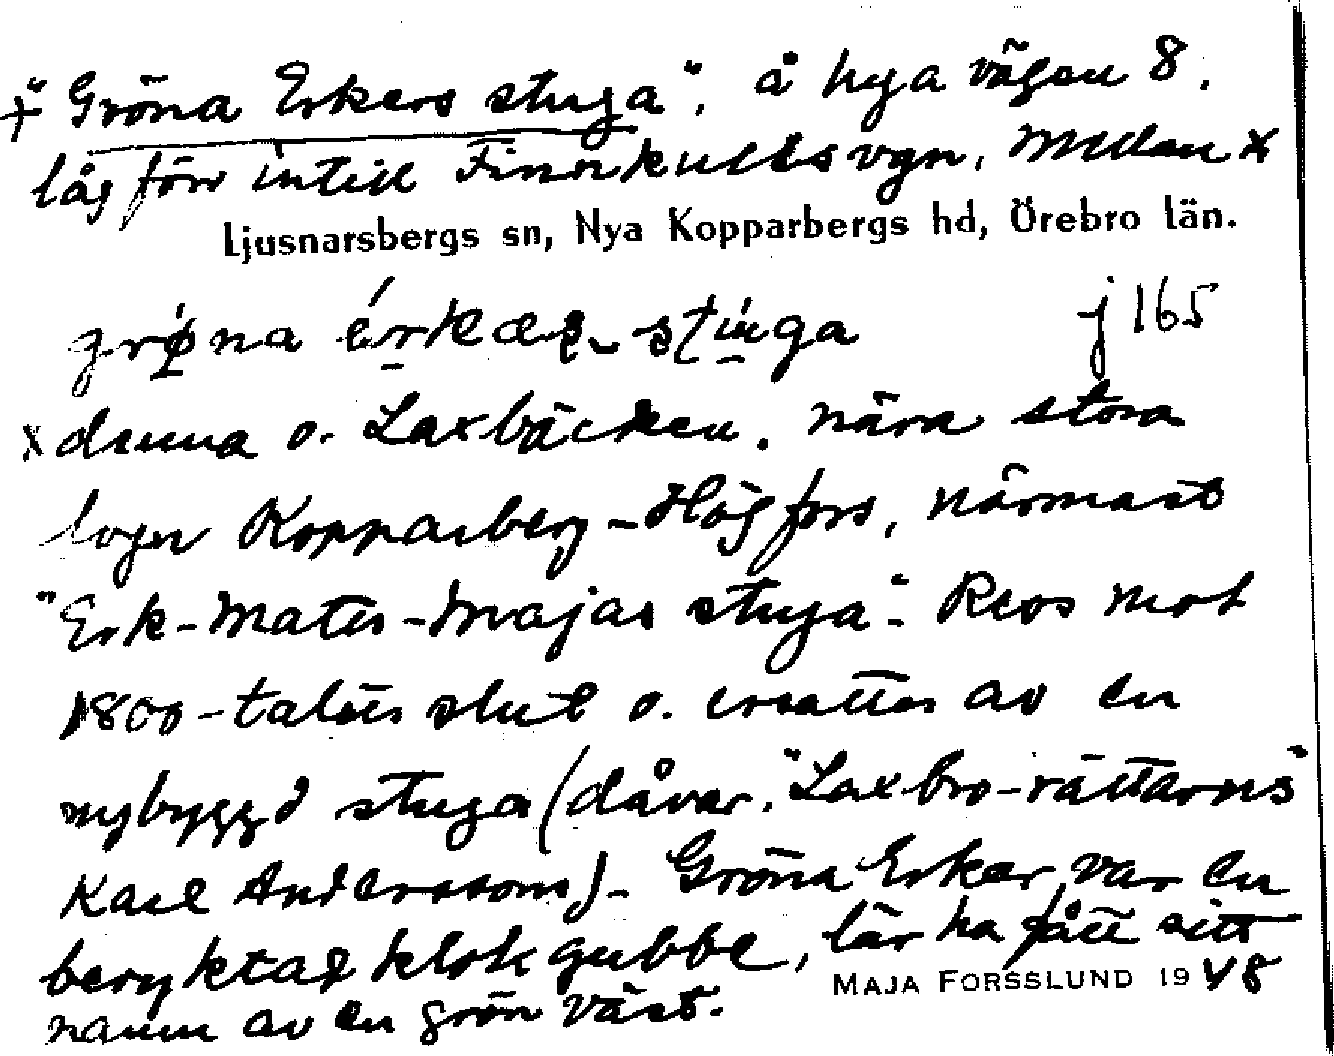 + "Gröna Erkers stuga", å nya vägen 8.
låg förr intill Finnkullsvgn, mellan x
Ljusnarsbergs sn, Nya Kopparbergs hd, Örebro län.
grø̀na érkæṣ_stúga j 165
x denna o. Laxbäcken, nära stora
vägen Kopparberg-Högfors, närmast
"Erk-Mats-Majas stuga". Revs mot
1800-talets slut o. ersattes av en
nybyggd stuga (dåvar. "Laxbro-rättarns"
Karl Anderssons). Gröna Erker var en
beryktad klok gubbe, lär ha fått sitt
namn av en grön väst.
MAJA FORSSLUND 1948